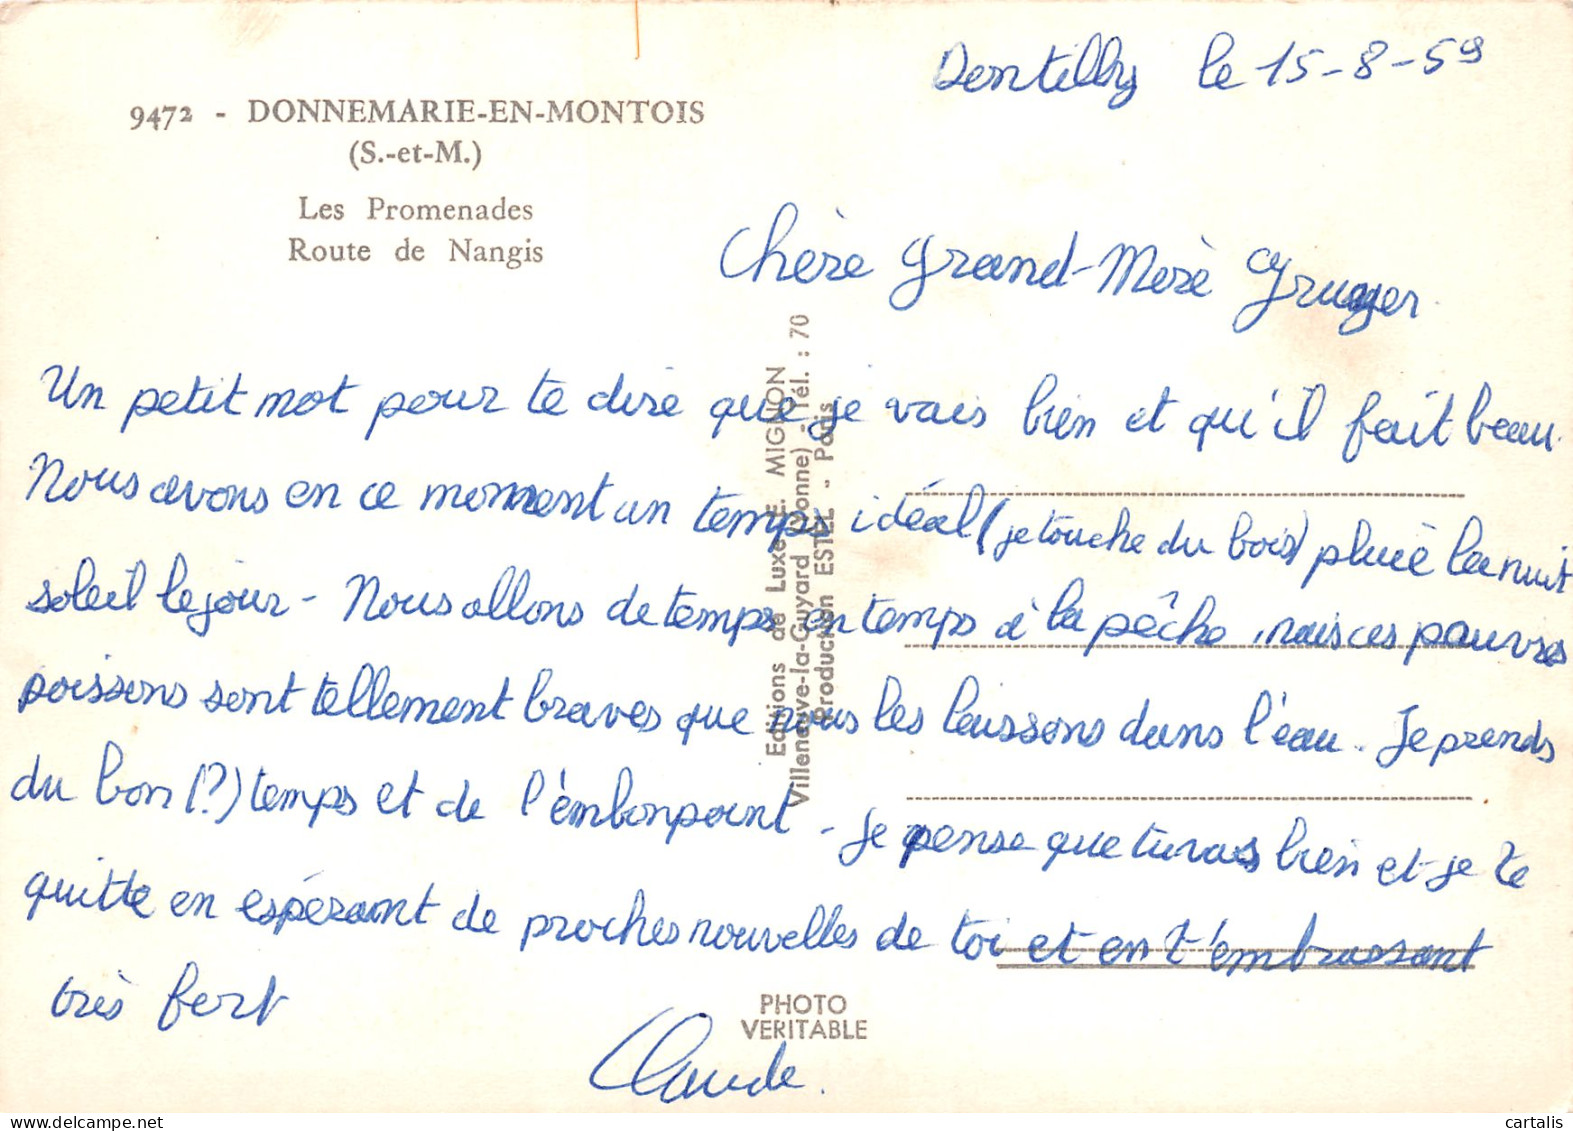 Dontilly le 15-8-59
9472 - DONNEMARIE-EN-MONTOIS
(S.-et-M.)
Les Promenades
Route de Nangis
Chère Grand-Mère Gruyer
Un petit mot pour te dire que je vais bien et qu'il fait beau.
Nous avons en ce moment un temps idéal (je touche du bois) pluie la nuit
soleil le jour - Nous allons de temps en temps à la pêche, mais ces pauvres
poissons sont tellement braves que nous les laissons dans l'eau. Je prends
du bon (?) temps et de l'embonpoint - Je pense que tu vas bien et je te
quitte en espérant de proches nouvelles de toi et en t'embrassant
très fort
Claude.
Editions de Luxe E. MIGNON
Villeneuve-la-Guyard (Yonne) - Tél. : 70
Production ESTEL - Paris
PHOTO
VERITABLE
cartalis | delcampe.net